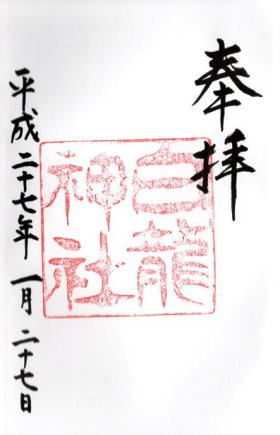 奉拝
白龍
神社
平成二十七年一月二十七日